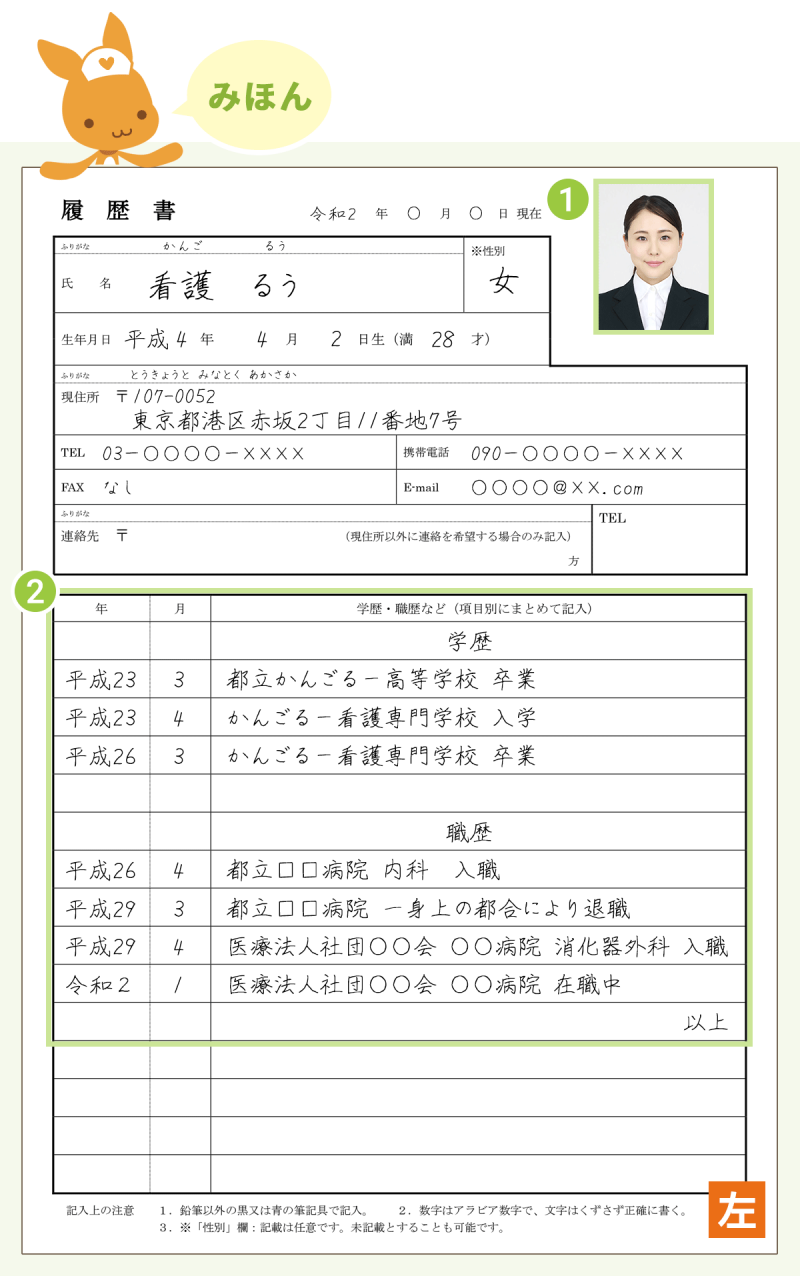 みほん
履歴書
令和2 年 〇 月 〇 日 現在
1
ふりがな かんご るう
※性別
氏 名 看護 るう
女
生年月日 平成 4 年 4 月 2 日生（満 28 才）
ふりがな とうきょうと みなとく あかさか
現住所 〒107-0052
東京都港区赤坂2丁目11番地7号
TEL 03-〇〇〇〇-××××
携帯電話 090-〇〇〇〇-××××
FAX なし
E-mail 〇〇〇〇@××.com
ふりがな
TEL
連絡先 〒 （現住所以外に連絡を希望する場合のみ記入）
方
2
年 月 学歴・職歴など（項目別にまとめて記入）
学歴
平成23 3 都立かんごるー高等学校 卒業
平成23 4 かんごるー看護専門学校 入学
平成26 3 かんごるー看護専門学校 卒業
職歴
平成26 4 都立口口病院 内科 入職
平成29 3 都立口口病院 一身上の都合により退職
平成29 4 医療法人社団〇〇会 〇〇病院 消化器外科 入職
令和2 1 医療法人社団〇〇会 〇〇病院 在職中
以上
記入上の注意 1．鉛筆以外の黒又は青の筆記具で記入。 2．数字はアラビア数字で、文字はくずさず正確に書く。
3．※「性別」欄：記載は任意です。未記載とすることも可能です。
左